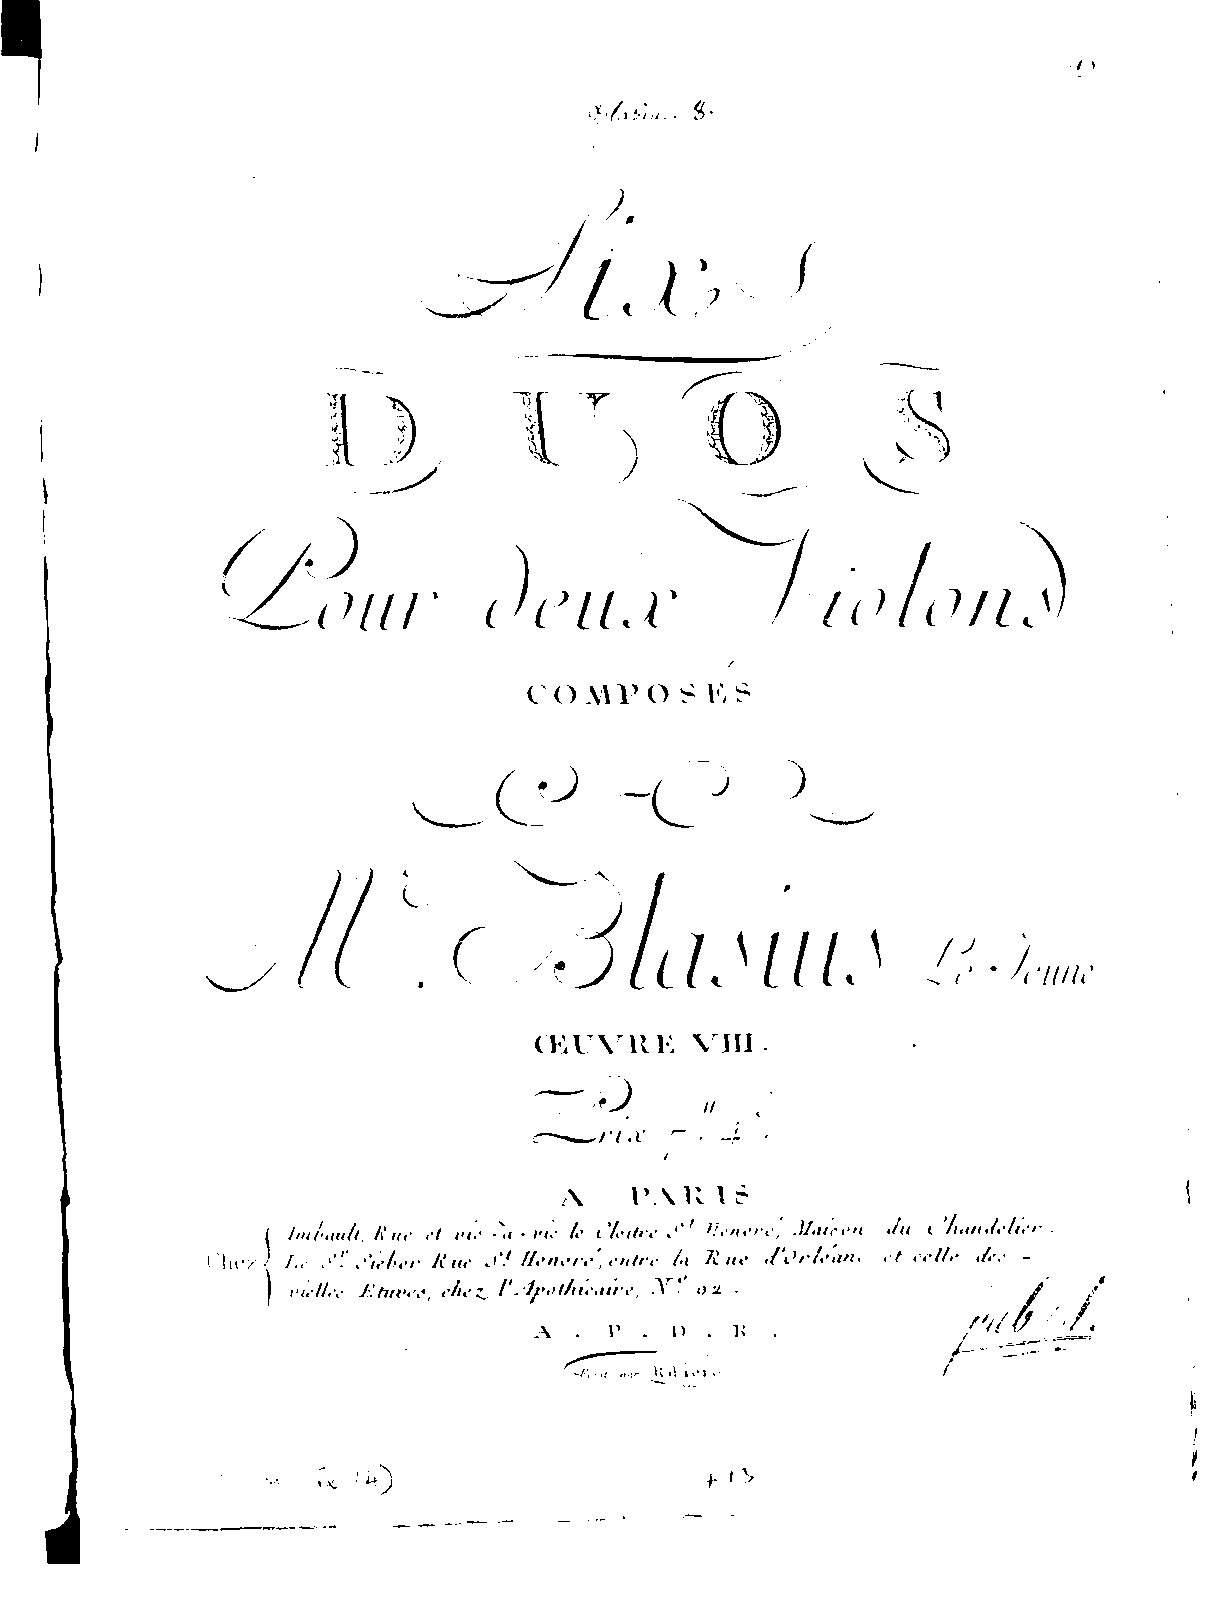 Blasius. 8.
Six
DUOS
Pour deux Violons
COMPOSÉS
Mr. Blasius Le Jeune
ŒUVRE VIII.
Prix 7." 4.
A PARIS
Chez
Imbault, Rue et vis-à-vis le Cloitre St. Honoré, Maison du Chandelier.
Le Sr. Sieber Rue St. Honoré, entre la Rue d'Orléans et celle des -
vielles Etuves, chez l'Apothicaire, No. 92.
A . P . D . R .
Ribiere
+ 13